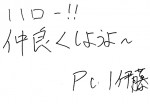 ハロー!!
仲良くしようよ〜
Pc.1 伊藤